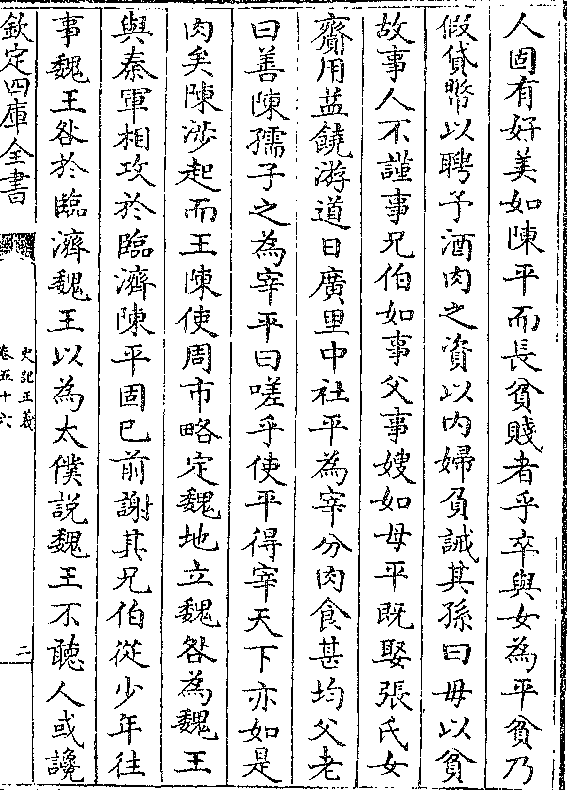 人固有好美如陳平而長貧賤者乎卒與女為平貧乃
假貸幣以聘予酒肉之資以内婦負誡其孫曰毋以貧
故事人不謹事兄伯如事父事嫂如母平既娶張氏女
齎用益饒游道日廣里中社平為宰分肉食甚均父老
曰善陳孺子之為宰平曰嗟乎使平得宰天下亦如是
肉矣陳涉起而王陳使周市略定魏地立魏咎為魏王
與秦軍相攻於臨濟陳平固已前謝其兄伯從少年往
事魏王咎於臨濟魏王以為太僕說魏王不聽人或讒
欽定四庫全書
史記正義
卷五十六
二